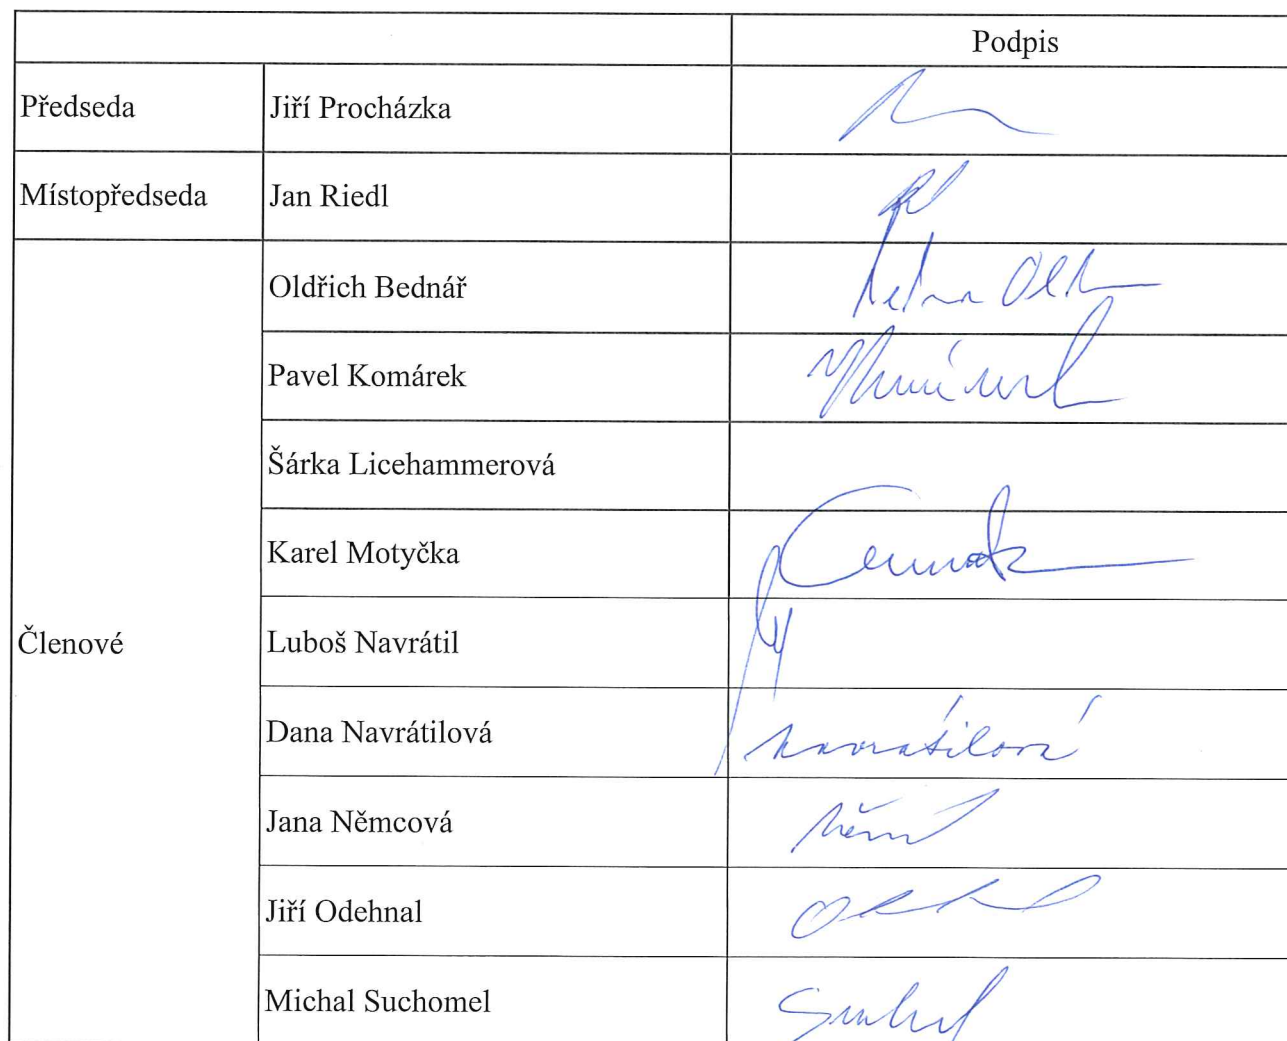 Podpis
Předseda Jiří Procházka
Místopředseda Jan Riedl
Oldřich Bednář
Pavel Komárek
Šárka Licehammerová
Karel Motyčka
Členové Luboš Navrátil
Dana Navrátilová navrátilová
Jana Němcová
Jiří Odehnal
Michal Suchomel